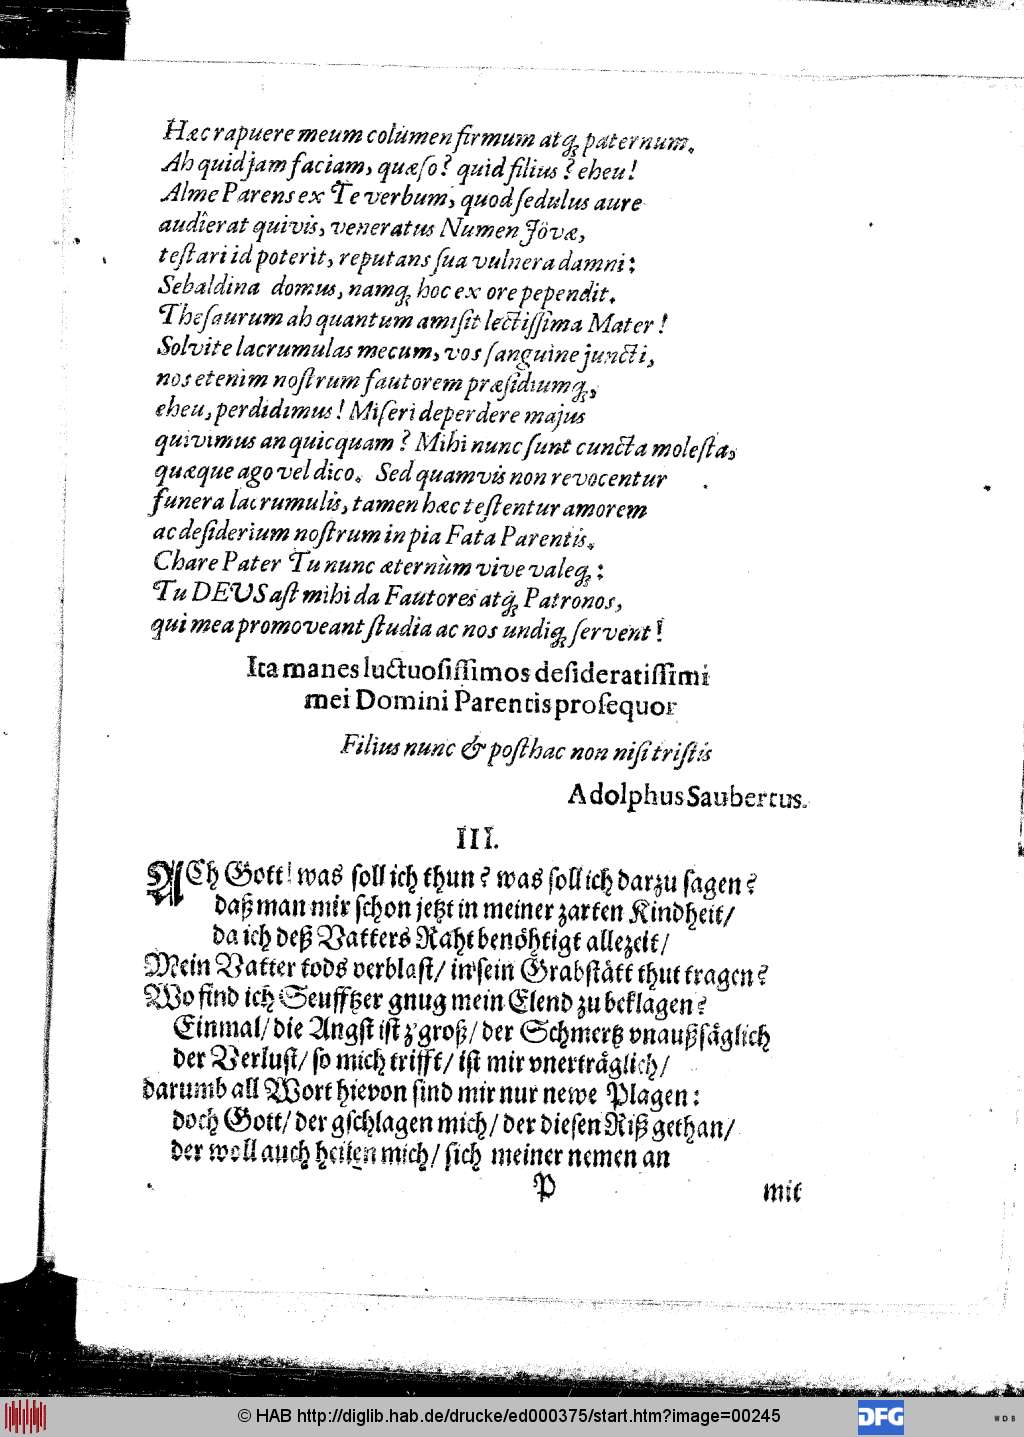 Hæc rapuere meum columen firmum atq; paternum.
Ah quid jam faciam, quæſo? quid filius? eheu!
Alme Parens ex Te verbum, quod ſedulus aure
audîerat quivis, veneratus Numen Jövæ,
teſtari id poterit, reputans ſua vulnera damni:
Sebaldina domus, namq; hoc ex ore pependit.
Theſaurum ah quantum amiſit lectiſſima Mater!
Solvite lacrumulas mecum, vos ſanguine juncti,
nos etenim noſtrum fautorem præſidiumq;,
eheu, perdidimus! Miſeri deperdere majus
quivimus an quicquam? Mihi nunc ſunt cuncta moleſta,
quæque ago vel dico. Sed quamvis non revocentur
funera lacrumulis, tamen hæc teſtentur amorem
ac deſiderium noſtrum in pia Fata Parentis.
Chare Pater Tu nunc æternùm vive valeq;:
Tu DEUS aſt mihi da Fautores atq; Patronos,
qui mea promoveant ſtudia ac nos undiq; ſervent!
Ita manes luctuoſiſſimos deſideratiſſimi
mei Domini Parentis proſequor
Filius nunc & poſthac non niſi triſtis
Adolphus Saubertus.
III.
ACh Gott! was ſoll ich thun? was ſoll ich darzu ſagen?
daß man mir ſchon jetzt in meiner zarten Kindheit/
da ich deß Vatters Raht benöhtigt allezeit/
Mein Vatter tods verblaſt/ in ſein Grabſtätt thut tragen?
Wo find ich Seufftzer gnug mein Elend zu beklagen?
Einmal/ die Angſt iſt z'groß/ der Schmertz vnaußſäglich
der Verluſt/ ſo mich trifft/ iſt mir vnerträglich/
darumb all Wort hievon ſind mir nur newe Plagen:
doch Gott/ der gſchlagen mich/ der dieſen Riß gethan/
der woll auch heilen mich/ ſich meiner nemen an
P mit
© HAB http://diglib.hab.de/drucke/ed000375/start.htm?image=00245
DFG
WDB